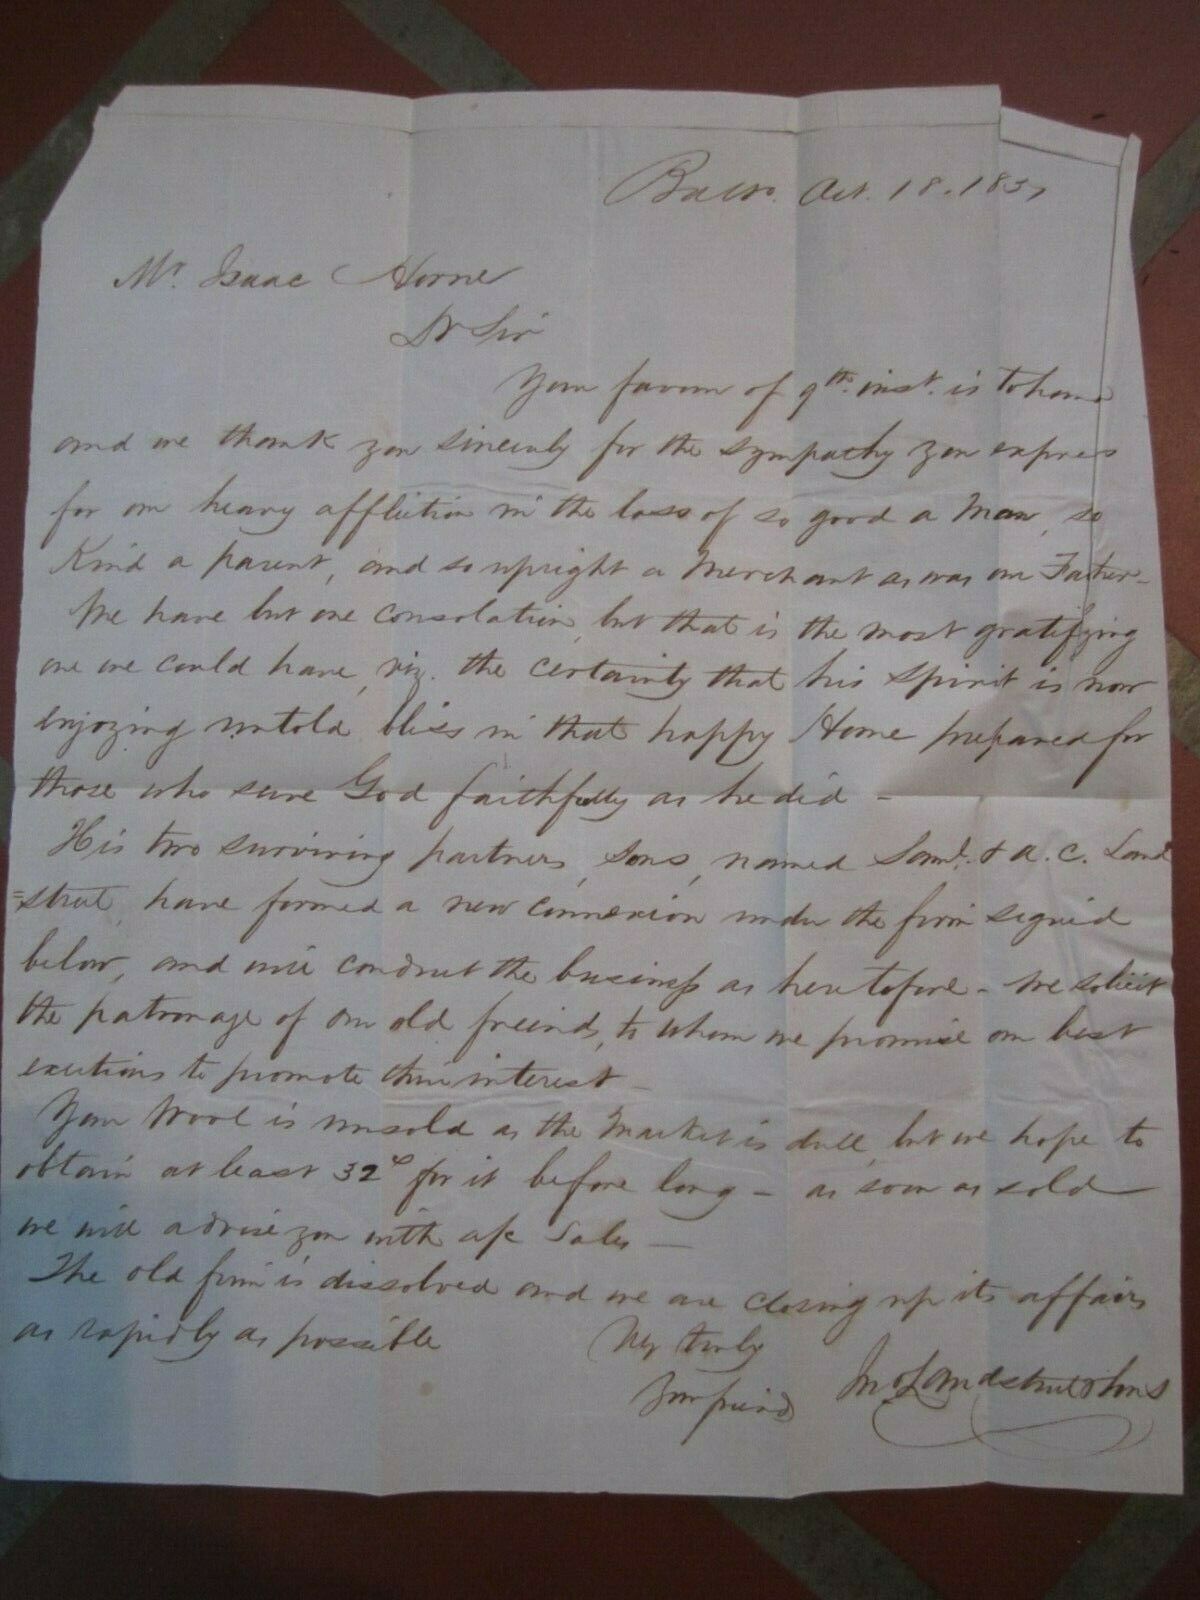 Balto. Oct. 18. 1837
Mr. Isaac Horne
Dr Sir
Your favour of 9th. inst. is to hand
and we thank you sincerely for the sympathy you express
for our heavy affliction in the loss of so good a Man, so
Kind a parent, and so upright a Merchant as was our Father -
We have but one consolation, but that is the most gratifying
one we could have, viz. the certainty that his spirit is now
enjoying untold bliss in that happy Home prepared for
those who serve God faithfully as he did -
His two surviving partners, sons, named Saml. & A. C. Land
=street, have formed a new connexion under the firm signed
below, and will conduct the business as heretofore - We solicit
the patronage of our old freinds, to whom we promise our best
exertions to promote their interest -
Your Wool is unsold as the Market is dull, but we hope to
obtain at least 32c for it before long - as soon as sold
we will advise you with a/c Sales -
The old firm is dissolved and we are closing up its affairs
as rapidly as possible
Vey truly
Your freind
Jno Landstreet & Sons